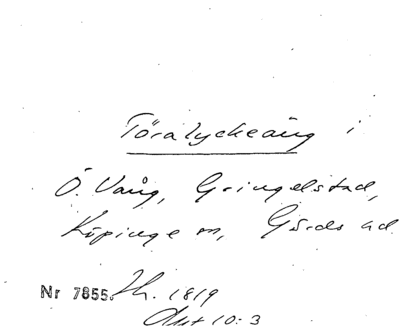 Töralyckeäng i
Ö. Vång, Gringelstad,
Köpinge sn, Gärds hd
Nr 7855. Jh. 1819
Akt 10:3